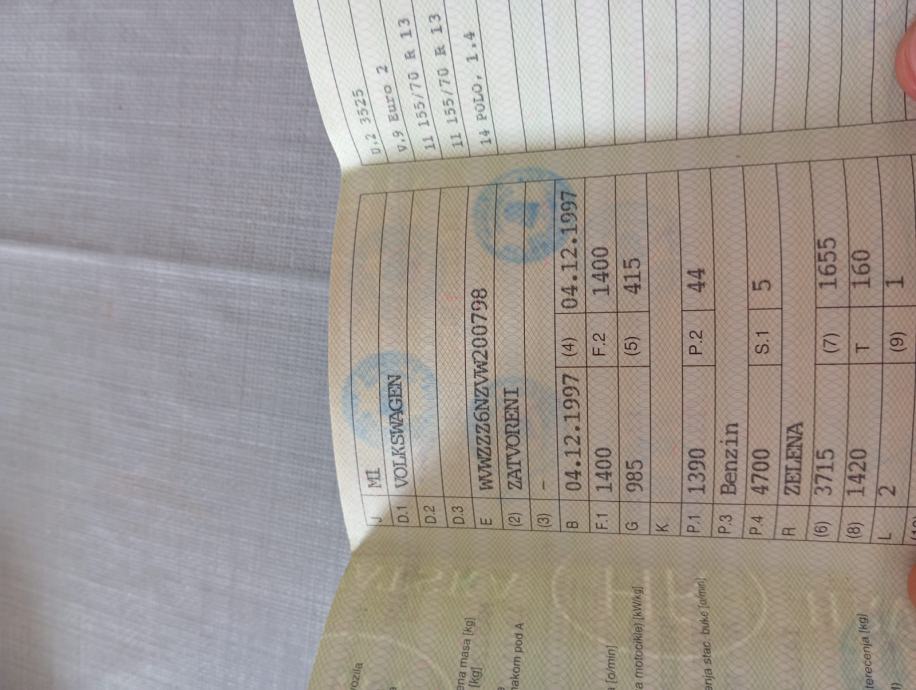 J M1
D.1 VOLKSWAGEN
D.2
D.3
E WVWZZZ6NZVW200798
(2) ZATVORENI
(3) -
B 04.12.1997 (4) 04.12.1997
F.1 1400 F.2 1400
G 985 (5) 415
K
P.1 1390 P.2 44
P.3 Benzin
P.4 4700 S.1 5
R ZELENA
(6) 3715 (7) 1655
(8) 1420 T 160
L 2 (9) 1
U.2 3525
V.9 Euro 2
11 155/70 R 13
11 155/70 R 13
14 POLO, 1.4
vozila
masa [kg]
[kg]
znakom pod A
[o/min]
motocikle) [kW/kg]
stac. buke [o/min]
terećenja [kg]